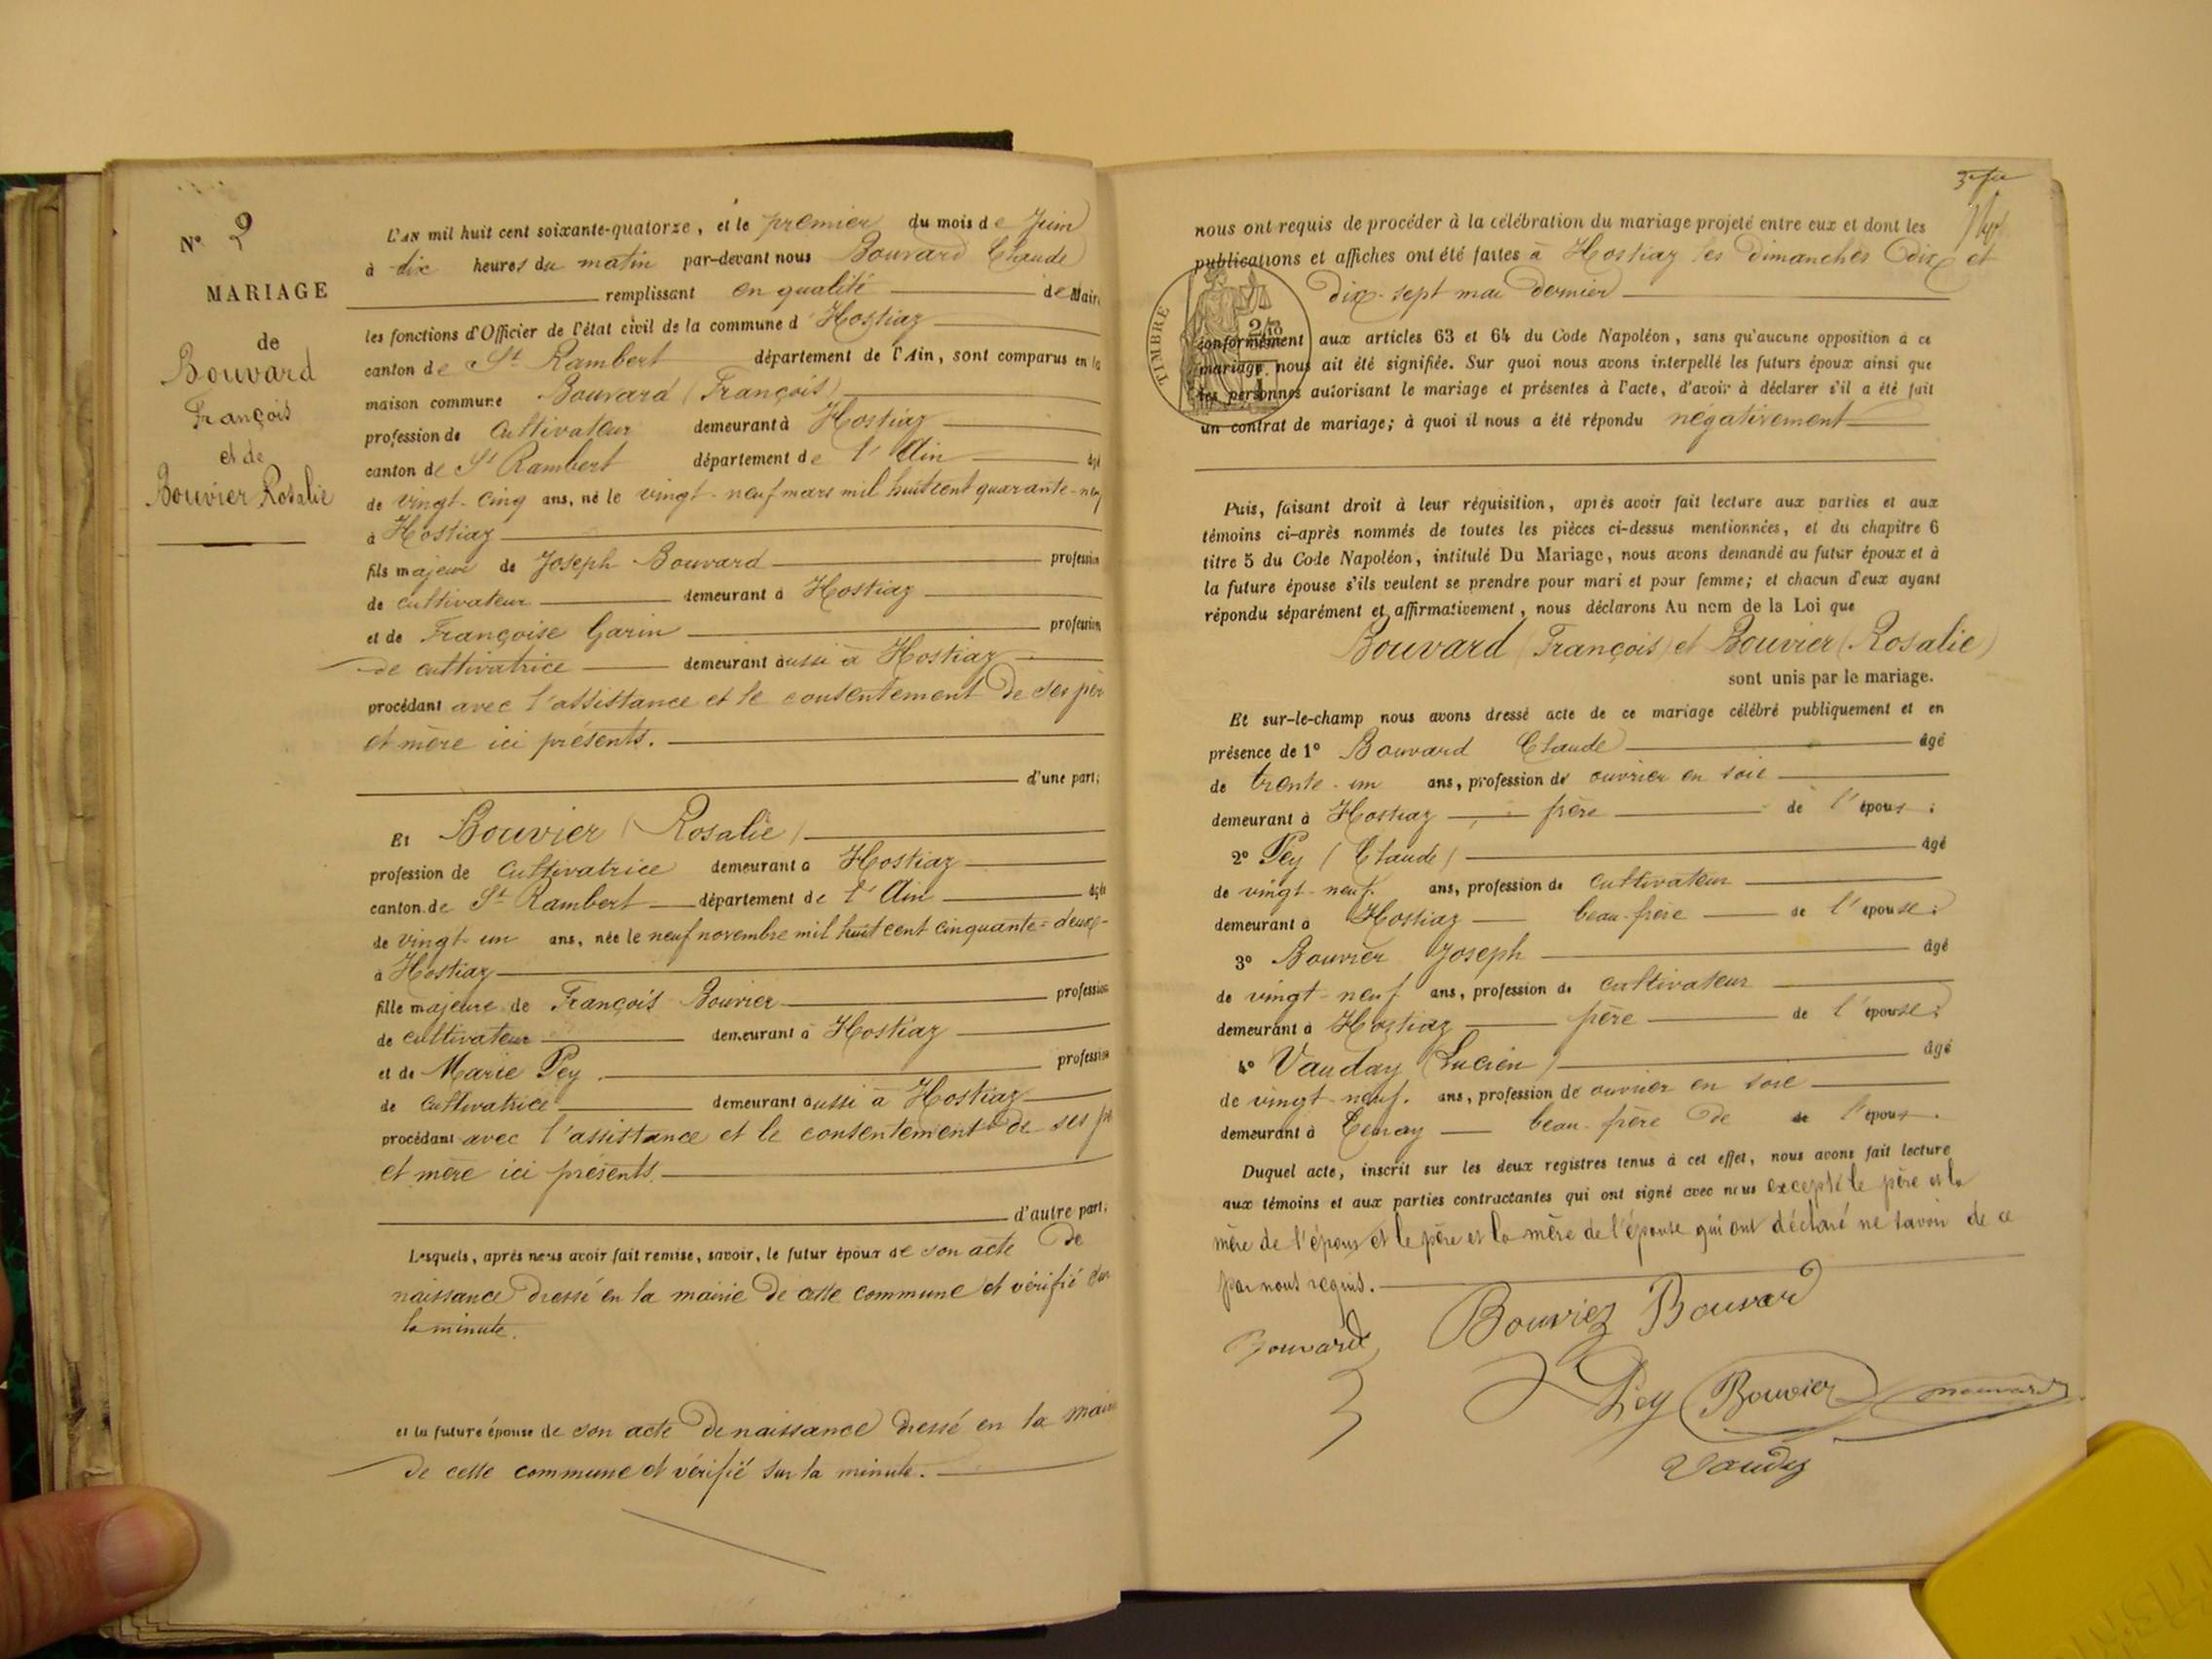 N° 2
MARIAGE
de
Bouvard
François
et de
Bouvier Rosalie
L'AN mil huit cent soixante-quatorze, et le premier du mois de Juin
à dix heures du matin par-devant nous Bouvard Claude
remplissant en qualité de Maire
les fonctions d'Officier de l'état civil de la commune d'Hostiaz
canton de St Rambert département de l'Ain, sont comparus en la
maison commune Bouvard (François)
profession de Cultivateur demeurant à Hostiaz
canton de St Rambert département de l'Ain âgé
de vingt-cinq ans, né le vingt-neuf mars mil huit cent quarante-neuf
à Hostiaz
fils majeur de Joseph Bouvard profession
de cultivateur demeurant à Hostiaz
et de Françoise Garin profession
de cultivatrice demeurant aussi à Hostiaz
procédant avec l'assistance et le consentement de ses pèr
et mère ici présents.
d'une part;
Et Bouvier (Rosalie)
profession de Cultivatrice demeurant à Hostiaz
canton de St Rambert département de l'Ain âgée
de vingt-un ans, née le neuf novembre mil huit cent cinquante-deux
à Hostiaz
fille majeure de François Bouvier profession
de cultivateur demeurant à Hostiaz
et de Marie Pey profession
de Cultivatrice demeurant aussi à Hostiaz
procédant avec l'assistance et le consentement de ses pè
et mère ici présents.
d'autre part;
Lesquels, après nous avoir fait remise, savoir, le futur époux de son acte de
naissance dressé en la mairie de cette commune et vérifié sur
la minute.
et la future épouse de son acte de naissance dressé en la mairie
de cette commune et vérifié sur la minute.
nous ont requis de procéder à la célébration du mariage projeté entre eux et dont les
publications et affiches ont été faites à Hostiaz les Dimanches Dix et
Dix-sept mai Dernier
TIMBRE
conformément aux articles 63 et 64 du Code Napoléon, sans qu'aucune opposition à ce
mariage nous ait été signifiée. Sur quoi nous avons interpellé les futurs époux ainsi que
les personnes autorisant le mariage et présentes à l'acte, d'avoir à déclarer s'il a été fait
un contrat de mariage; à quoi il nous a été répondu négativement
Puis, faisant droit à leur réquisition, après avoir fait lecture aux parties et aux
témoins ci-après nommés de toutes les pièces ci-dessus mentionnées, et du chapitre 6
titre 5 du Code Napoléon, intitulé Du Mariage, nous avons demandé au futur époux et à
la future épouse s'ils veulent se prendre pour mari et pour femme; et chacun d'eux ayant
répondu séparément et affirmativement, nous déclarons Au nom de la Loi que
Bouvard (François) et Bouvier (Rosalie)
sont unis par le mariage.
Et sur-le-champ nous avons dressé acte de ce mariage célébré publiquement et en
présence de 1° Bouvard Claude âgé
de trente-un ans, profession de ouvrier en soie
demeurant à Hostiaz frère de l'époux;
2° Pey (Claude) âgé
de vingt-neuf ans, profession de Cultivateur
demeurant à Hostiaz beau-frère de l'épouse;
3° Bouvier Joseph âgé
de vingt-neuf ans, profession de cultivateur
demeurant à Hostiaz frère de l'épouse;
4° Vauday (Lucien) âgé
de vingt-neuf. ans, profession de ouvrier en soie
demeurant à Tenay beau-frère de de l'époux.
Duquel acte, inscrit sur les deux registres tenus à cet effet, nous avons fait lecture
aux témoins et aux parties contractantes qui ont signé avec nous excepté le père et la
mère de l'époux et le père et la mère de l'épouse qui ont déclaré ne savoir de ce
par nous requis.
Bouvard Bouvier Bouvard
Pey Bouvier